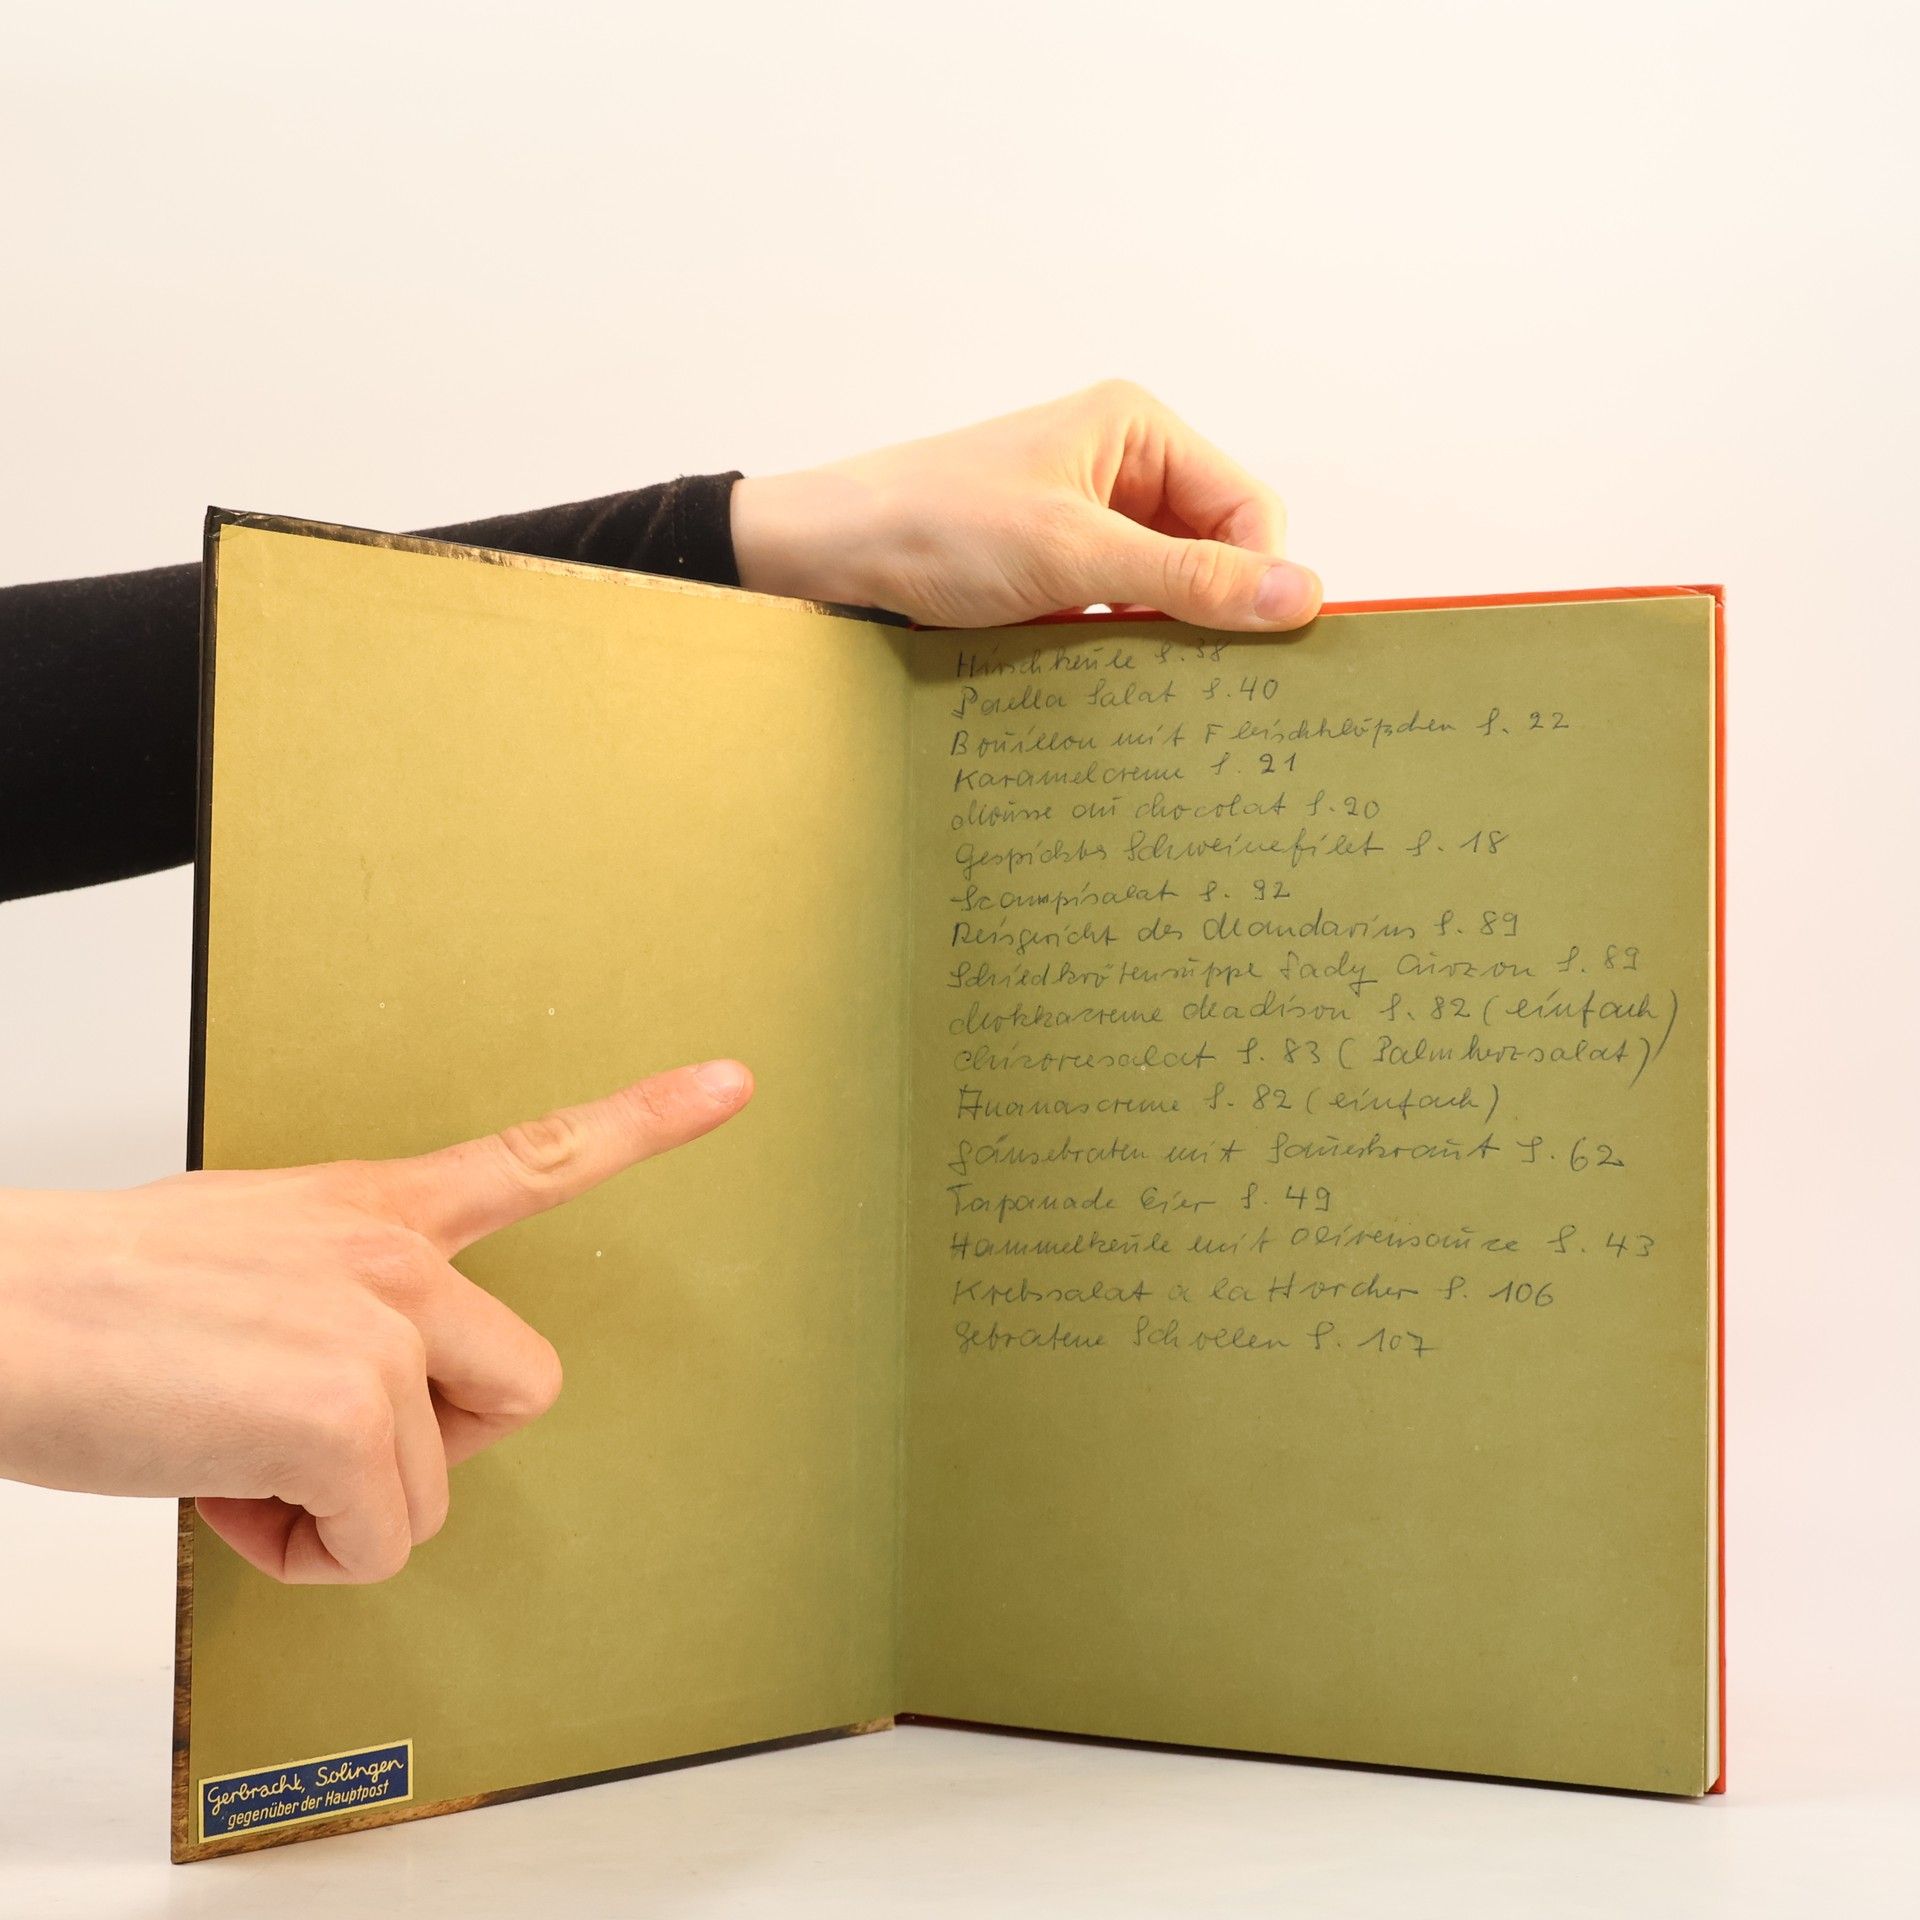 Hirschkeule S. 38
Paella Salat S. 40
Bouillon mit Fleischklößchen S. 22
Karamelcreme S. 21
Mousse au chocolat S. 20
Gespicktes Schweinefilet S. 18
Scampisalat S. 92
Reisgericht des Mandarins S. 89
Schiedkrötensuppe Lady Curzon S. 89
Mokkacreme Madison S. 82 (einfach)
Chicoreesalat S. 83 (Palmherzsalat)
Ananascreme S. 82 (einfach)
Gänsebraten mit Sauerkraut S. 62
Tapanade Eier S. 49
Hammelkeule mit Olivensauce S. 43
Krebssalat a la Horcher S. 106
Gebratene Schollen S. 107
Gerbracht, Solingen
gegenüber der Hauptpost